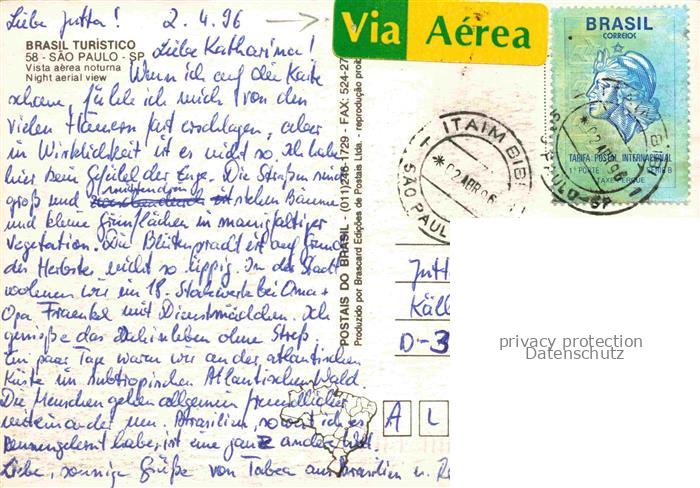 Liebe Jutta! 2.4.96 →
Liebe Katharina!
BRASIL TURÍSTICO
58 - SÃO PAULO - SP
Vista aérea noturna
Night aerial view
Wenn ich auf die Karte
schaue, fühle ich mich von den
vielen Häusern fast erschlagen, aber
in Wirklichkeit ist es nicht so. Ich habe
hier kein Gefühl der Enge. Die Straßen sind
groß und stehen Bäume
und kleine Grünflächen in mannigfaltiger
Vegetation. Die Blütenpracht ist auf Grund
des Herbstes nicht so üppig. In der Stadt
wohnen wir im 18. Stockwerk bei Oma +
Opa Fraenkel mit Dienstmädchen. Ich
genieße das Dahinleben ohne Streß.
Ein paar Tage waren wir an der atlantischen
Küste im subtropischen Atlantischen Wald.
Die Menschen gehen allgemein freundlicher
miteinander um. Brasilien, soweit ich es
kennengelernt habe, ist eine ganz andere Welt.
Liebe, sonnige Grüße von Tabea aus Brasilien u.
POSTAIS DO BRASIL - (011)246-1729 - FAX: 524-27
Produzido por Brascard Edições de Postais Ltda. - reprodução proib
Via Aérea
BRASIL
CORREIOS
TARIFA POSTAL INTERNACIONAL
1º PORTE SÉRIE B
TAXE PERÇUE
ITAIM BIBI
*02 ABR 96
SÃO PAUL
ITAIM BIBI
*02 ABR 96
SÃO PAULO-SP
Jutt
Käll
D-3
A L
privacy protection
Datenschutz